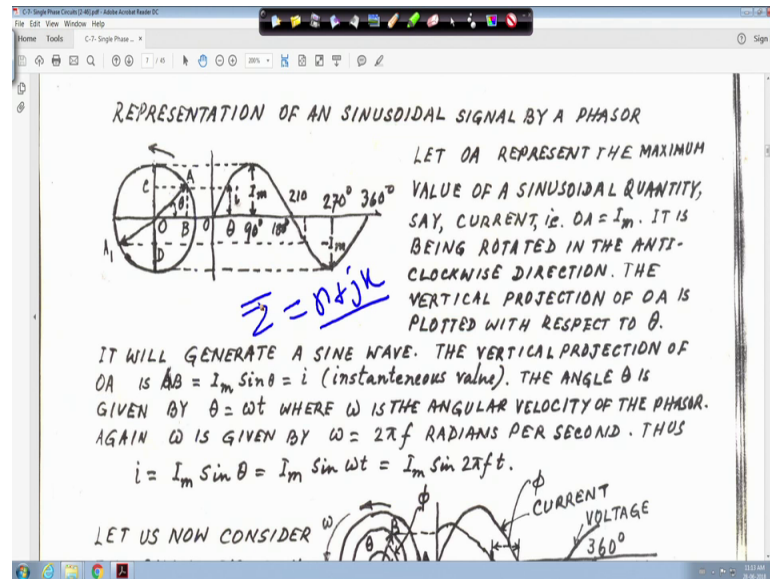 C-7- Single Phase Circuits [2-46].pdf - Adobe Acrobat Reader DC
File Edit View Window Help
Home Tools C-7- Single Phase ... × Sign
7 / 45 200%
REPRESENTATION OF AN SINUSOIDAL SIGNAL BY A PHASOR
LET OA REPRESENT THE MAXIMUM
VALUE OF A SINUSOIDAL QUANTITY,
SAY, CURRENT, i.e. OA = Im. IT IS
BEING ROTATED IN THE ANTI-
CLOCKWISE DIRECTION. THE
VERTICAL PROJECTION OF OA IS
PLOTTED WITH RESPECT TO θ.
C A θ O B A1 D
Im i 0 θ 90° 180° 210 270° 360° -Im
IT WILL GENERATE A SINE WAVE. THE VERTICAL PROJECTION OF
OA IS AB = Im Sinθ = i (instanteneous value). THE ANGLE θ IS
GIVEN BY θ = ωt WHERE ω IS THE ANGULAR VELOCITY OF THE PHASOR.
AGAIN ω IS GIVEN BY ω = 2πf RADIANS PER SECOND. THUS
i = Im Sin θ = Im Sin ωt = Im Sin 2πft.
LET US NOW CONSIDER
ω θ B ϕ
ϕ CURRENT
VOLTAGE
360°
11:13 AM